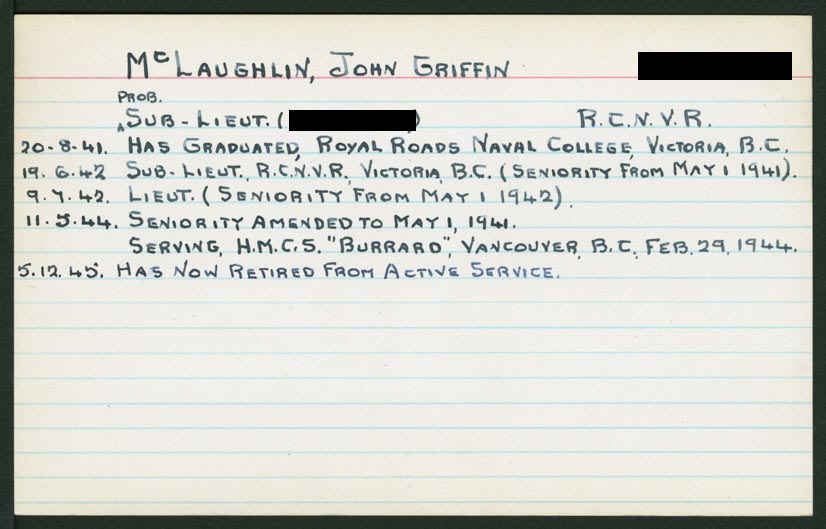 McLAUGHLIN, JOHN GRIFFIN
PROB.
SUB-LIEUT. ( ) R.C.N.V.R.
20-8-41. HAS GRADUATED, ROYAL ROADS NAVAL COLLEGE, VICTORIA, B.C.
19.6.42 SUB-LIEUT., R.C.N.V.R., VICTORIA, B.C. (SENIORITY FROM MAY 1 1941).
9.7.42. LIEUT. (SENIORITY FROM MAY 1 1942).
11.5.44. SENIORITY AMENDED TO MAY 1, 1941.
SERVING, H.M.C.S. "BURRARD", VANCOUVER, B.C. FEB. 29, 1944.
5.12.45. HAS NOW RETIRED FROM ACTIVE SERVICE.